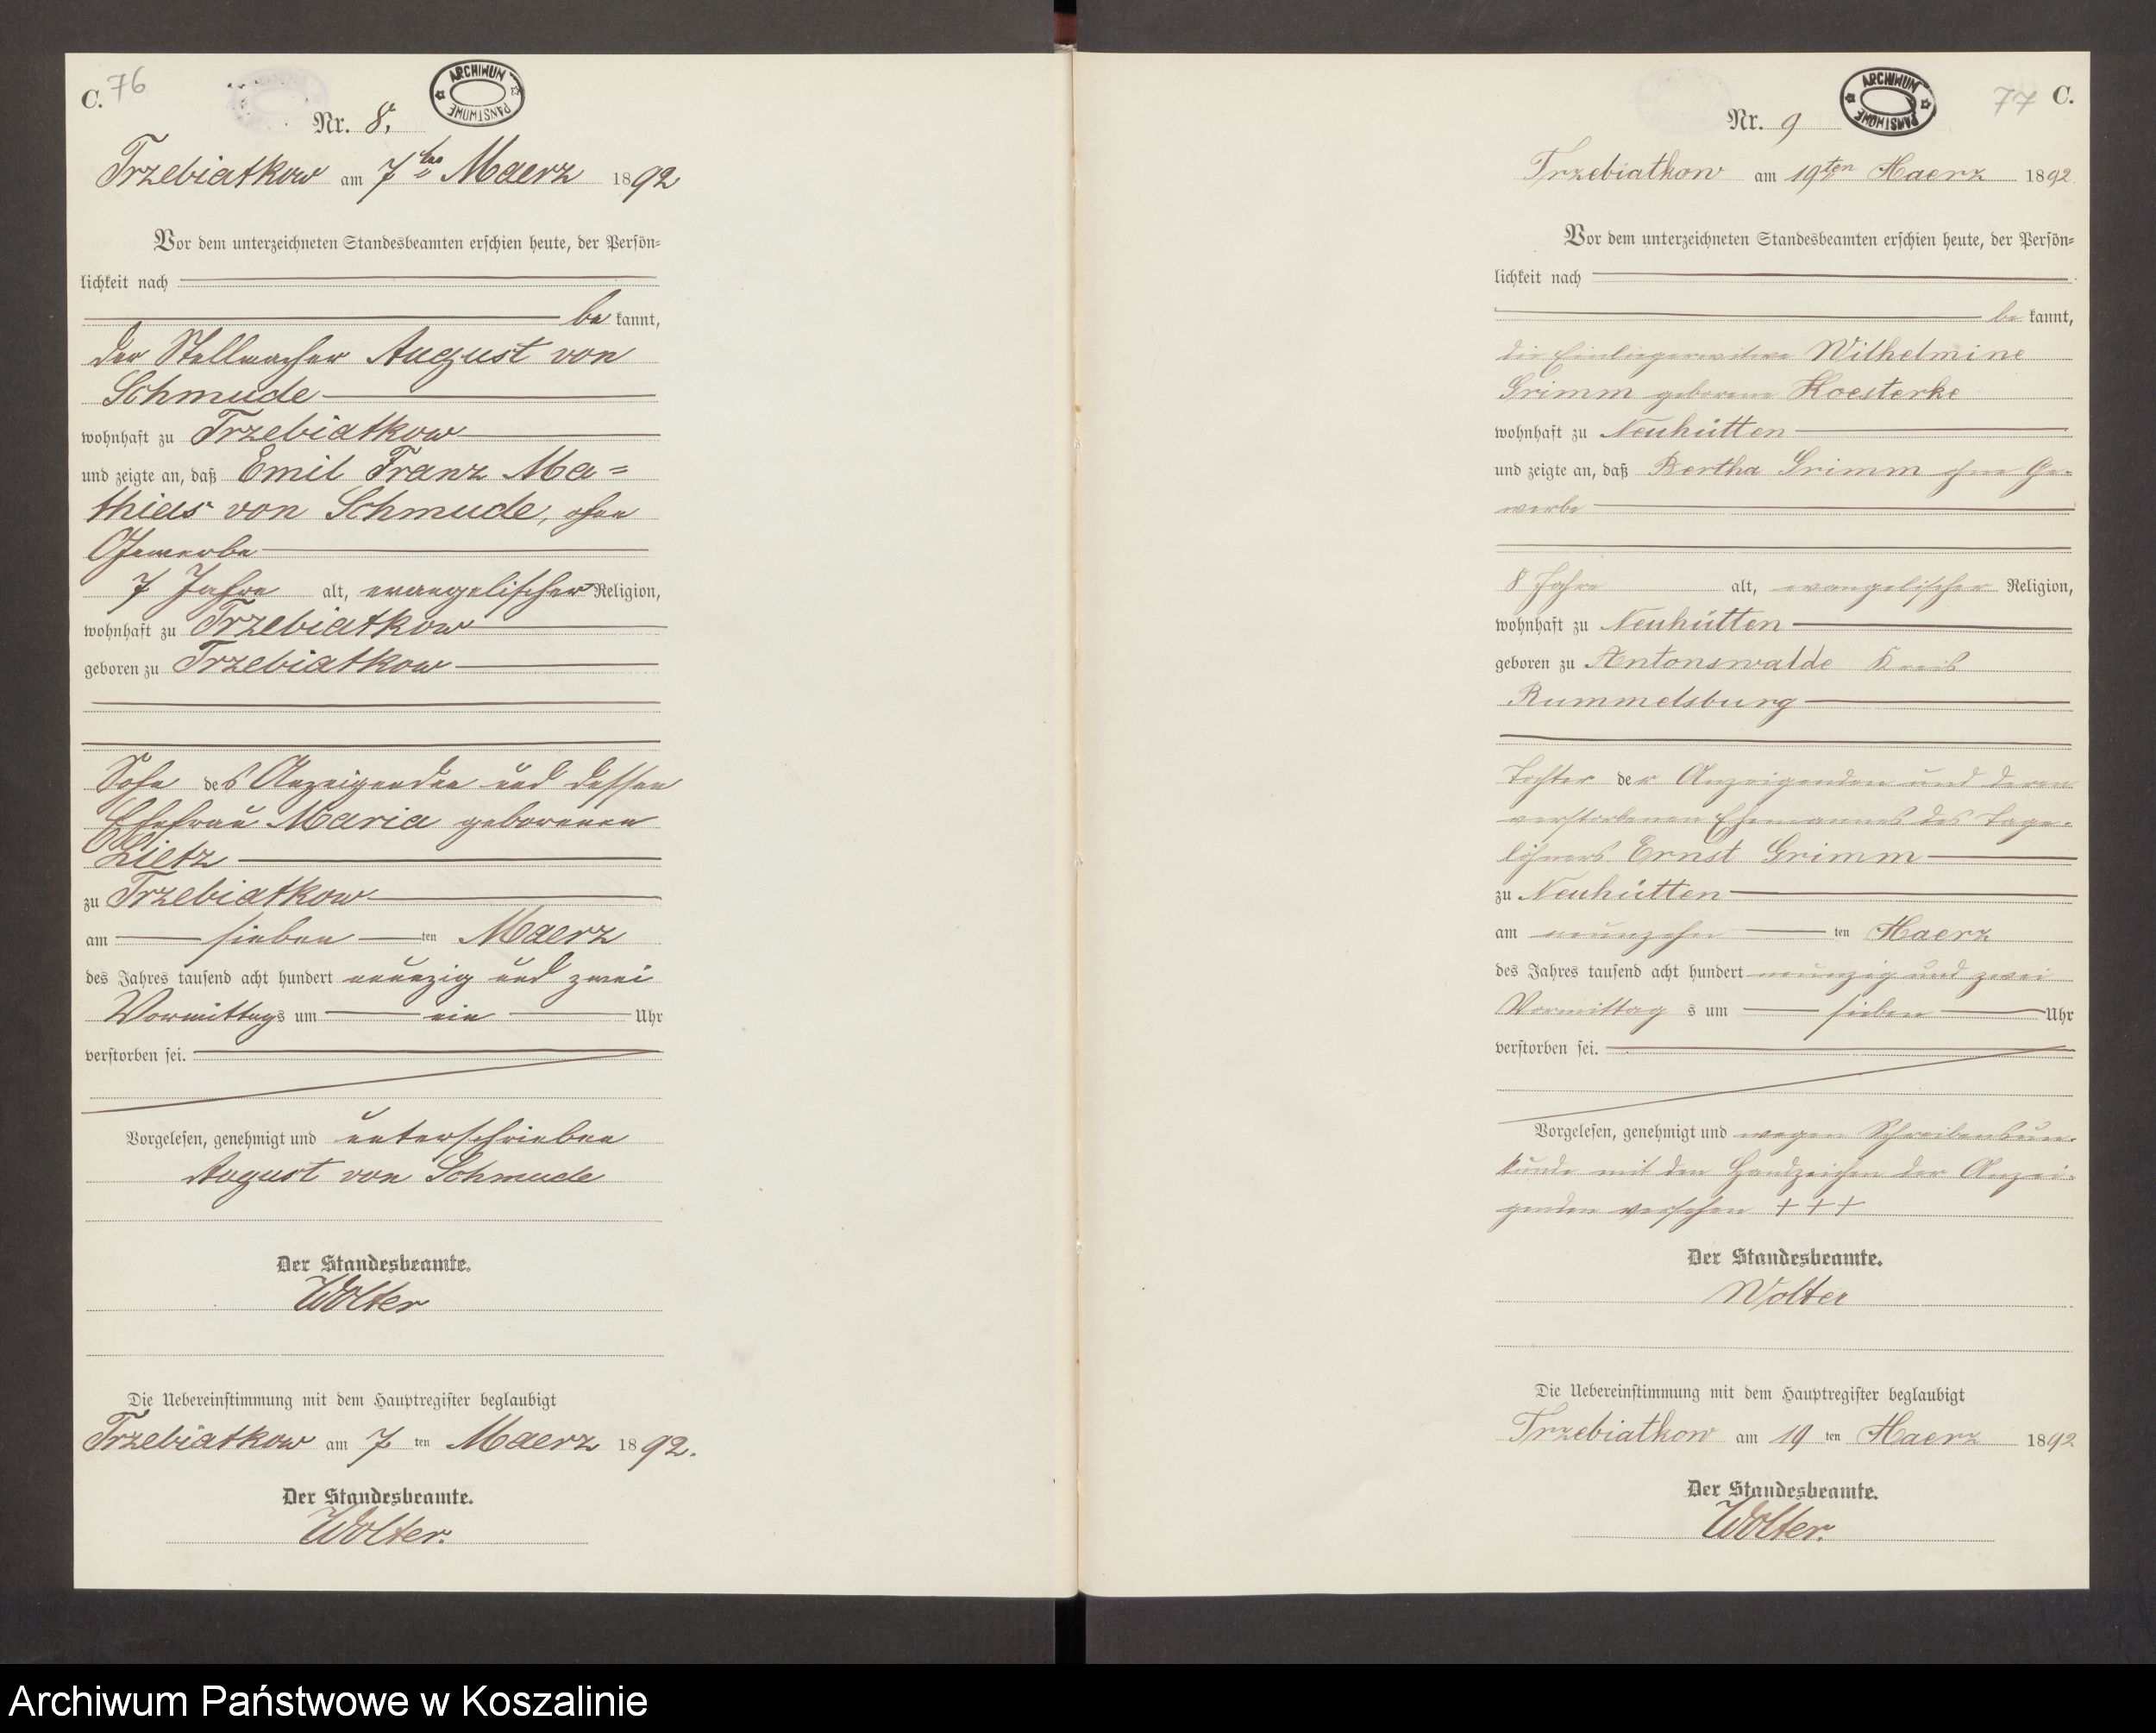 C. 76
ARCHIWUM
PAŃSTWOWE
Nr. 8.
Trzebiatkow am 7ten Maerz 1892
Vor dem unterzeichneten Standesbeamten erschien heute, der Persön-
lichkeit nach
be kannt,
der Stellmacher August von
Schmude
wohnhaft zu Trzebiatkow
und zeigte an, daß Emil Franz Ma=
thias von Schmude, ohne
Gewerbe
7 Jahre alt, evangelischer Religion,
wohnhaft zu Trzebiatkow
geboren zu Trzebiatkow
Sohn des Anzeigenden und dessen
Ehefrau Maria geborenen
Lietz
zu Trzebiatkow
am sieben ten Maerz
des Jahres tausend acht hundert neunzig und zwei
Vormittags um ein Uhr
verstorben sei.
Vorgelesen, genehmigt und unterschrieben
August von Schmude
Der Standesbeamte.
Wolter
Die Uebereinstimmung mit dem Hauptregister beglaubigt
Trzebiatkow am 7 ten Maerz 1892.
Der Standesbeamte.
Wolter.
77 C.
ARCHIWUM
PAŃSTWOWE
Nr. 9
Trzebiatkow am 19ten Maerz 1892.
Vor dem unterzeichneten Standesbeamten erschien heute, der Persön-
lichkeit nach
be kannt,
die Einliegerwitwe Wilhelmine
Grimm geborene Koesterke
wohnhaft zu Neuhütten
und zeigte an, daß Bertha Grimm ohne Ge-
werbe
8 Jahre alt, evangelischer Religion,
wohnhaft zu Neuhütten
geboren zu Antonswalde Kreis
Rummelsburg
Tochter der Anzeigenden und deren
verstorbenen Ehemannes des Tage-
löhners Ernst Grimm
zu Neuhütten
am neunzehn ten Maerz
des Jahres tausend acht hundert neunzig und zwei
Vormittag s um sieben Uhr
verstorben sei.
Vorgelesen, genehmigt und wegen Schreibensun-
kunde mit den Handzeichen der Anzei-
genden versehen +++
Der Standesbeamte.
Wolter
Die Uebereinstimmung mit dem Hauptregister beglaubigt
Trzebiatkow am 19 ten Maerz 1892
Der Standesbeamte.
Wolter.
Archiwum Państwowe w Koszalinie